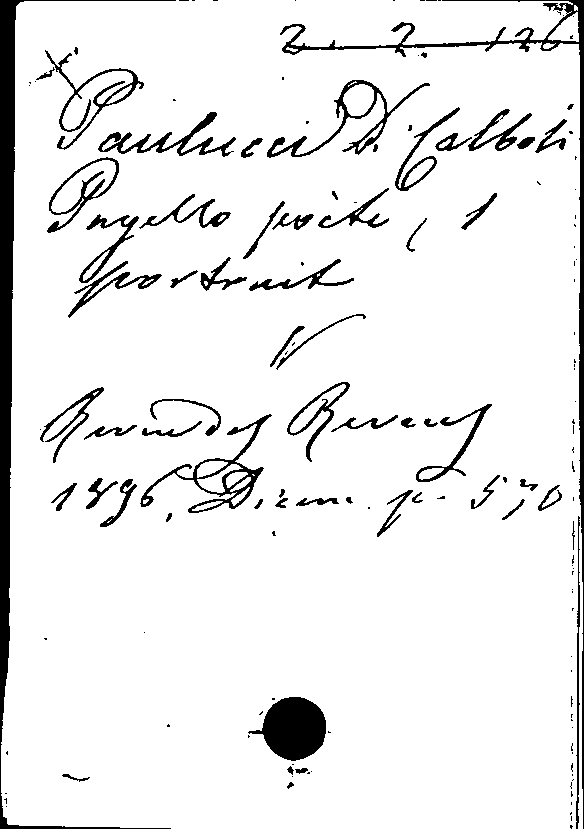 2. 2. 126
Paulucci D. Calboli
Pagello poète, 1
portrait
Revue des Revues
1896, Dicem. p. 570